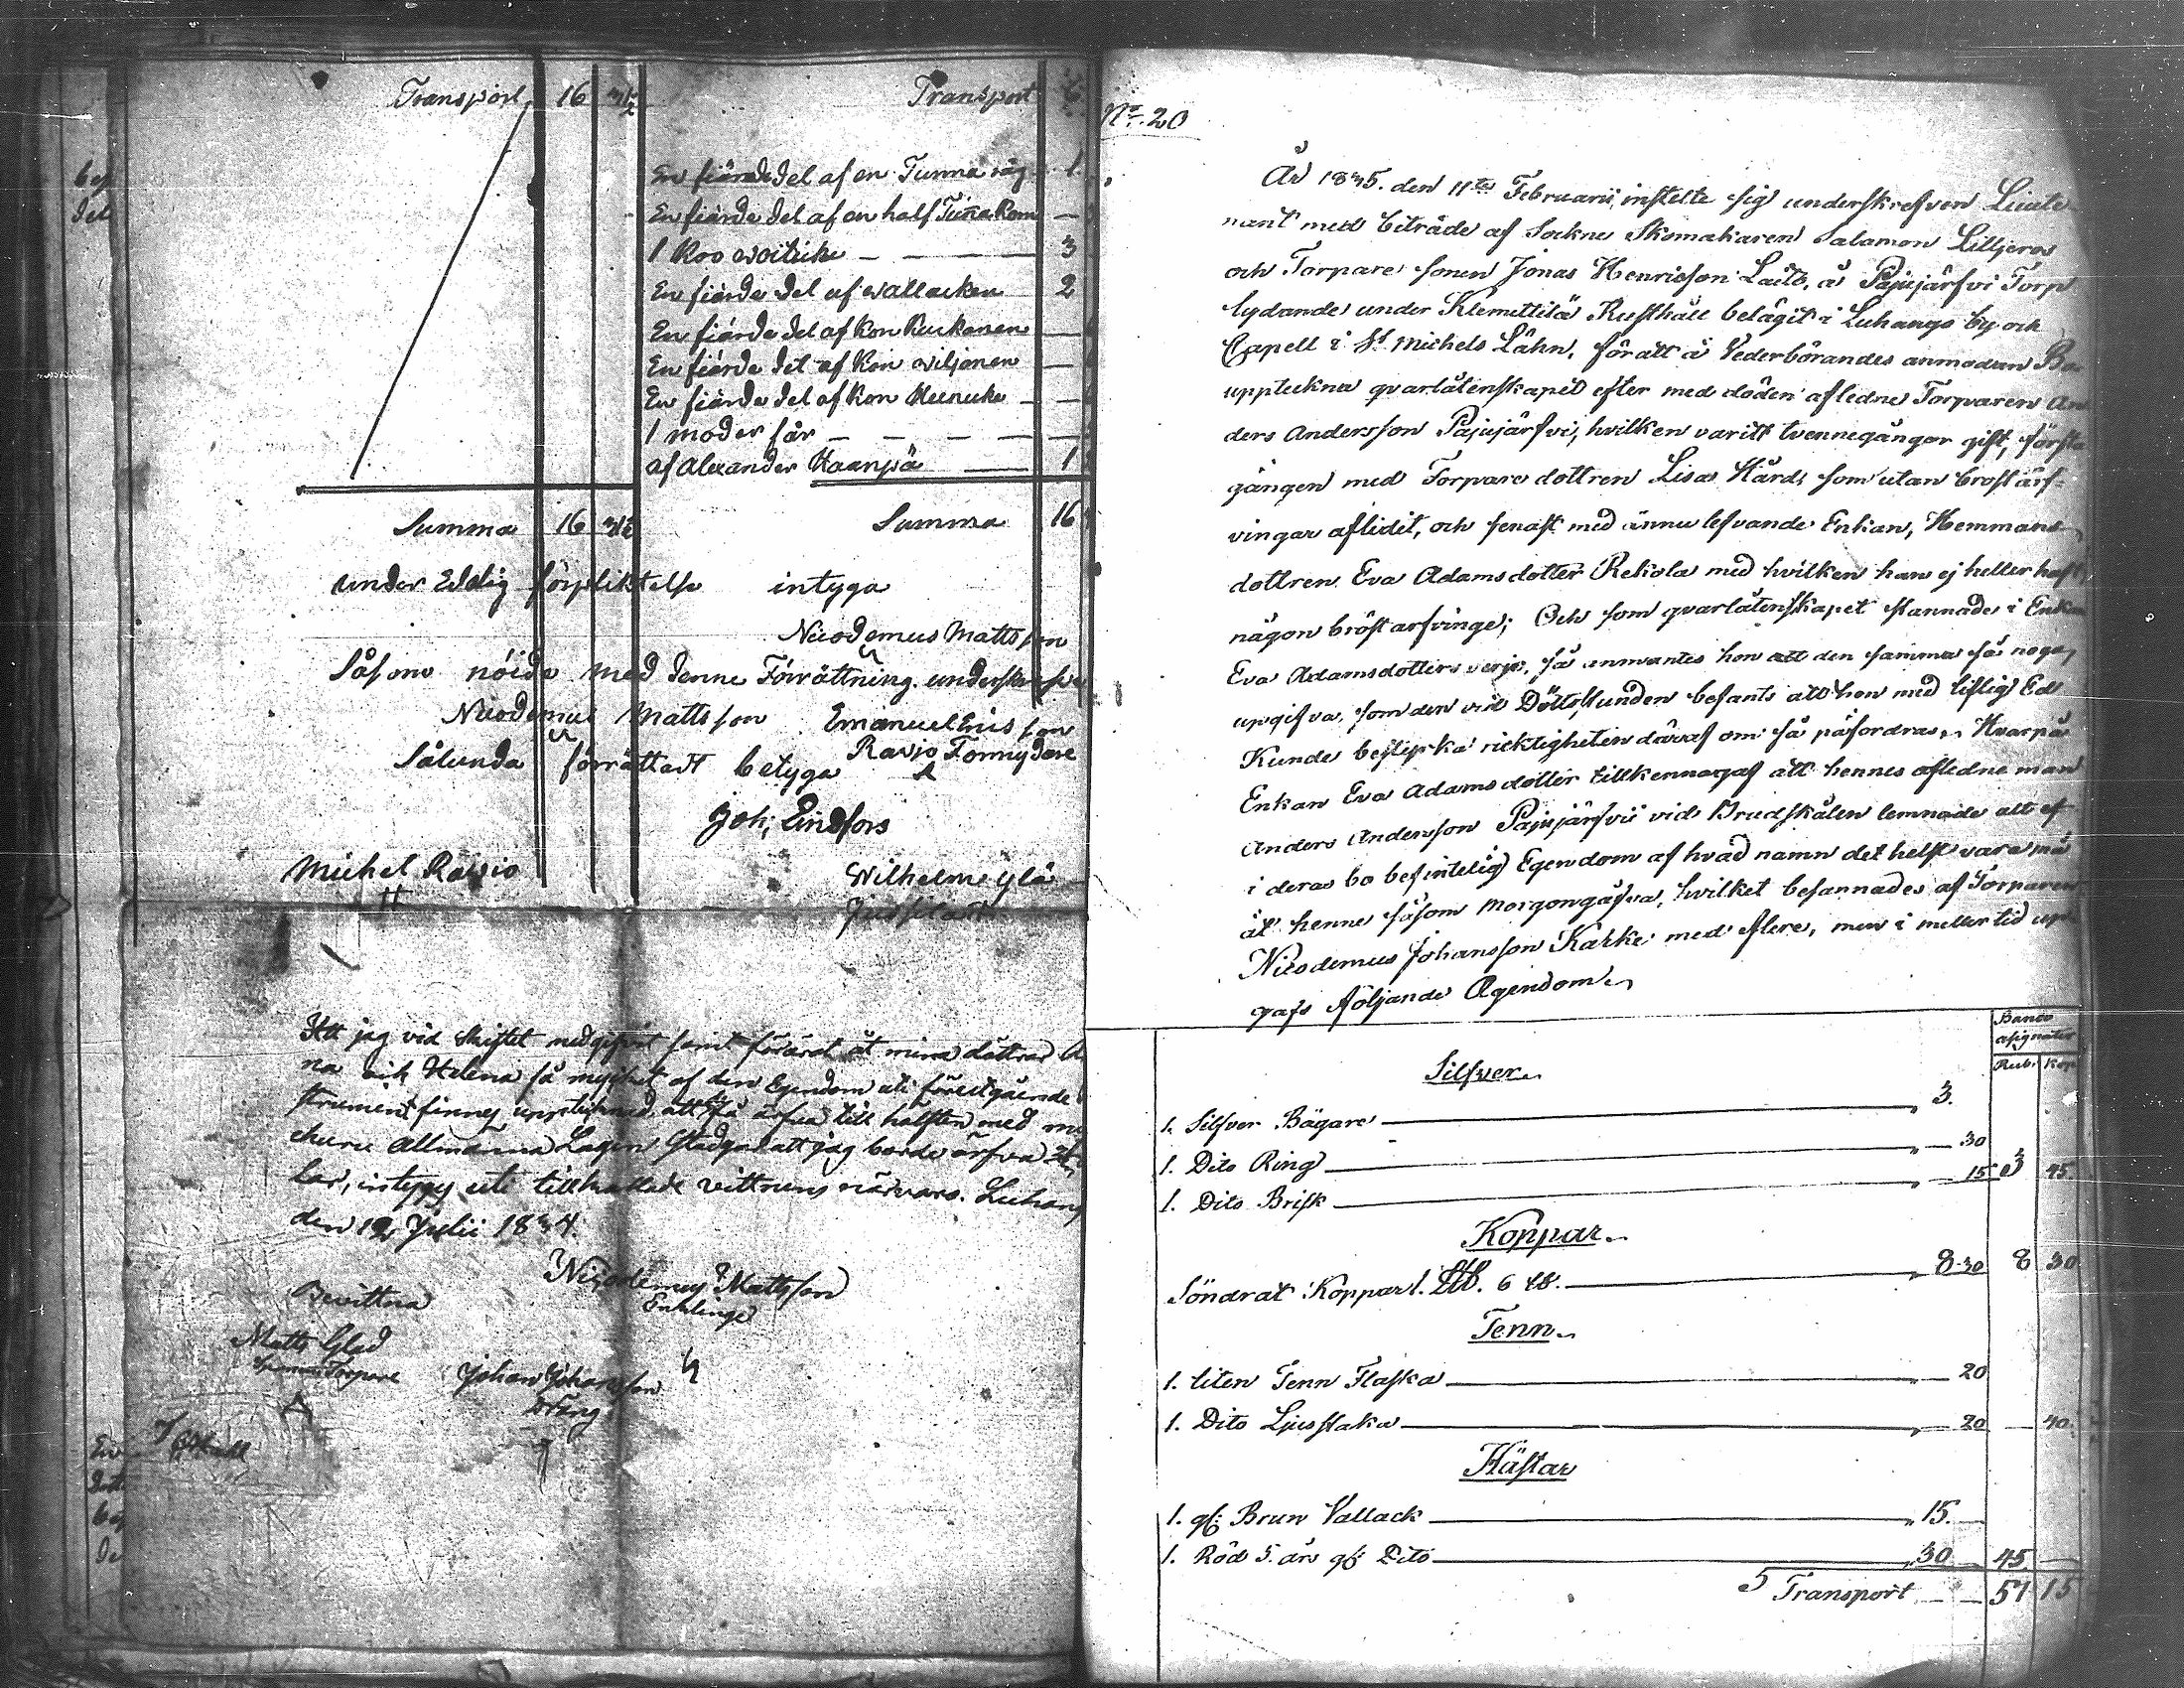 Transport 16
Transport
En fiärdedel af en Tunna råg 1
En fiärdedel af en half Tunna Korn
1 Koo 3
En fiärdedel af wallacken 2
En fiärdedel af kon Kuckonen
En fiärdedel af kon wiljonen
En fiärdedel af kon
1 moder får
af alexander Kaanpä 1
Summa 16
Summa 16
under Edelig förpliktelse intyga
Nicodemus Mattsson
Såsom nöide med denne Förrättning underskrifve
Nicodemus Mattsson Emanuel Ericsson
Rawjo Förmyndare
Sålunda förrättadt betyga
Joh; Lindfors
Michel Rawio
Wilhelm ylä
Att jag vid skiftet medgifvit samt förärat åt mina döttrar A
na och Helena så mycket af den Egendom uti förestgående
strument finnes upptecknad, att få ärfva till hälften med
churu Allmänna Lagen stadgar att jag borde ärfva
lar, intygas uti tillkallade vittnens närvaro. Luhang
den 12 Julii 1834.
Nicodemus Mattsson
Enkling
Bevittna
Matts Glad
Torpare
Johan Johansson
Dräng
N:o 20
År 1835. den 11te Februarii, instelte sig underskrefven Lieute
nant med biträde af Sockne Skomakaren Salamon Lilljeros
och Torpare sonen Jonas Henricsson Laito, å Pajujärfvi Torp
lydande under Klemettilä Rusthåll belägit i Luhango by och
Capell i St Michels Lähn, för att å Vederbörandes anmodan Bo
uppteckna qvarlåtenskapet efter med döden afledne Torparen An
ders Andersson Pajujärfvi, hvilken varitt tvennegångor gift, första
gången med Torpare dottren Lisa Hård, som utan bröst arf-
vingar aflidit, och senast med ännu lefvande Enkan, Hemmans
dottren Eva Adamsdotter Rekola med hvilken han ej heller haft
någon bröst arfvinge; Och som qvarlåtenskapet stannade i Enkan
Eva Adamsdotters verjo, så anmantes hon att den samma så noga
upgifva, som den vid Dödsstunden befants att hon med liflig Ed
Kunde besyrka ricktigheten däraf om så påfordras, Hvarpå
Enkan Eva Adamsdotter tillkennagaf att hennes afledne man
Anders Andersson Pajujärfvi vid Brudskålen lemnade alt ef
i deras bo befintelig Egendom af hvad namn det helst vara må
åt henne såsom Morgongåfva, hvilket besannades af Torparen
Nicodemus Johansson Karke med flere, men i mellertid upp
gafs följande Ägendom
Banco
asignater
Rub. Kop
Silfver
1. Silfver Bägare 3.
1. Dito Ring 30
1. Dito Brisk 15 3 45
Koppar
Söndrat Koppar 1. L℔. 6 ℔. 8.30 8 30
Tenn
1. liten Tenn Flaska 20
1. Dito Ljusstaka 20 40
Hästar
1. gl: Brun Vallack 15.
1. Röd 5. års gl: Dito 30 45
Transport 57 15